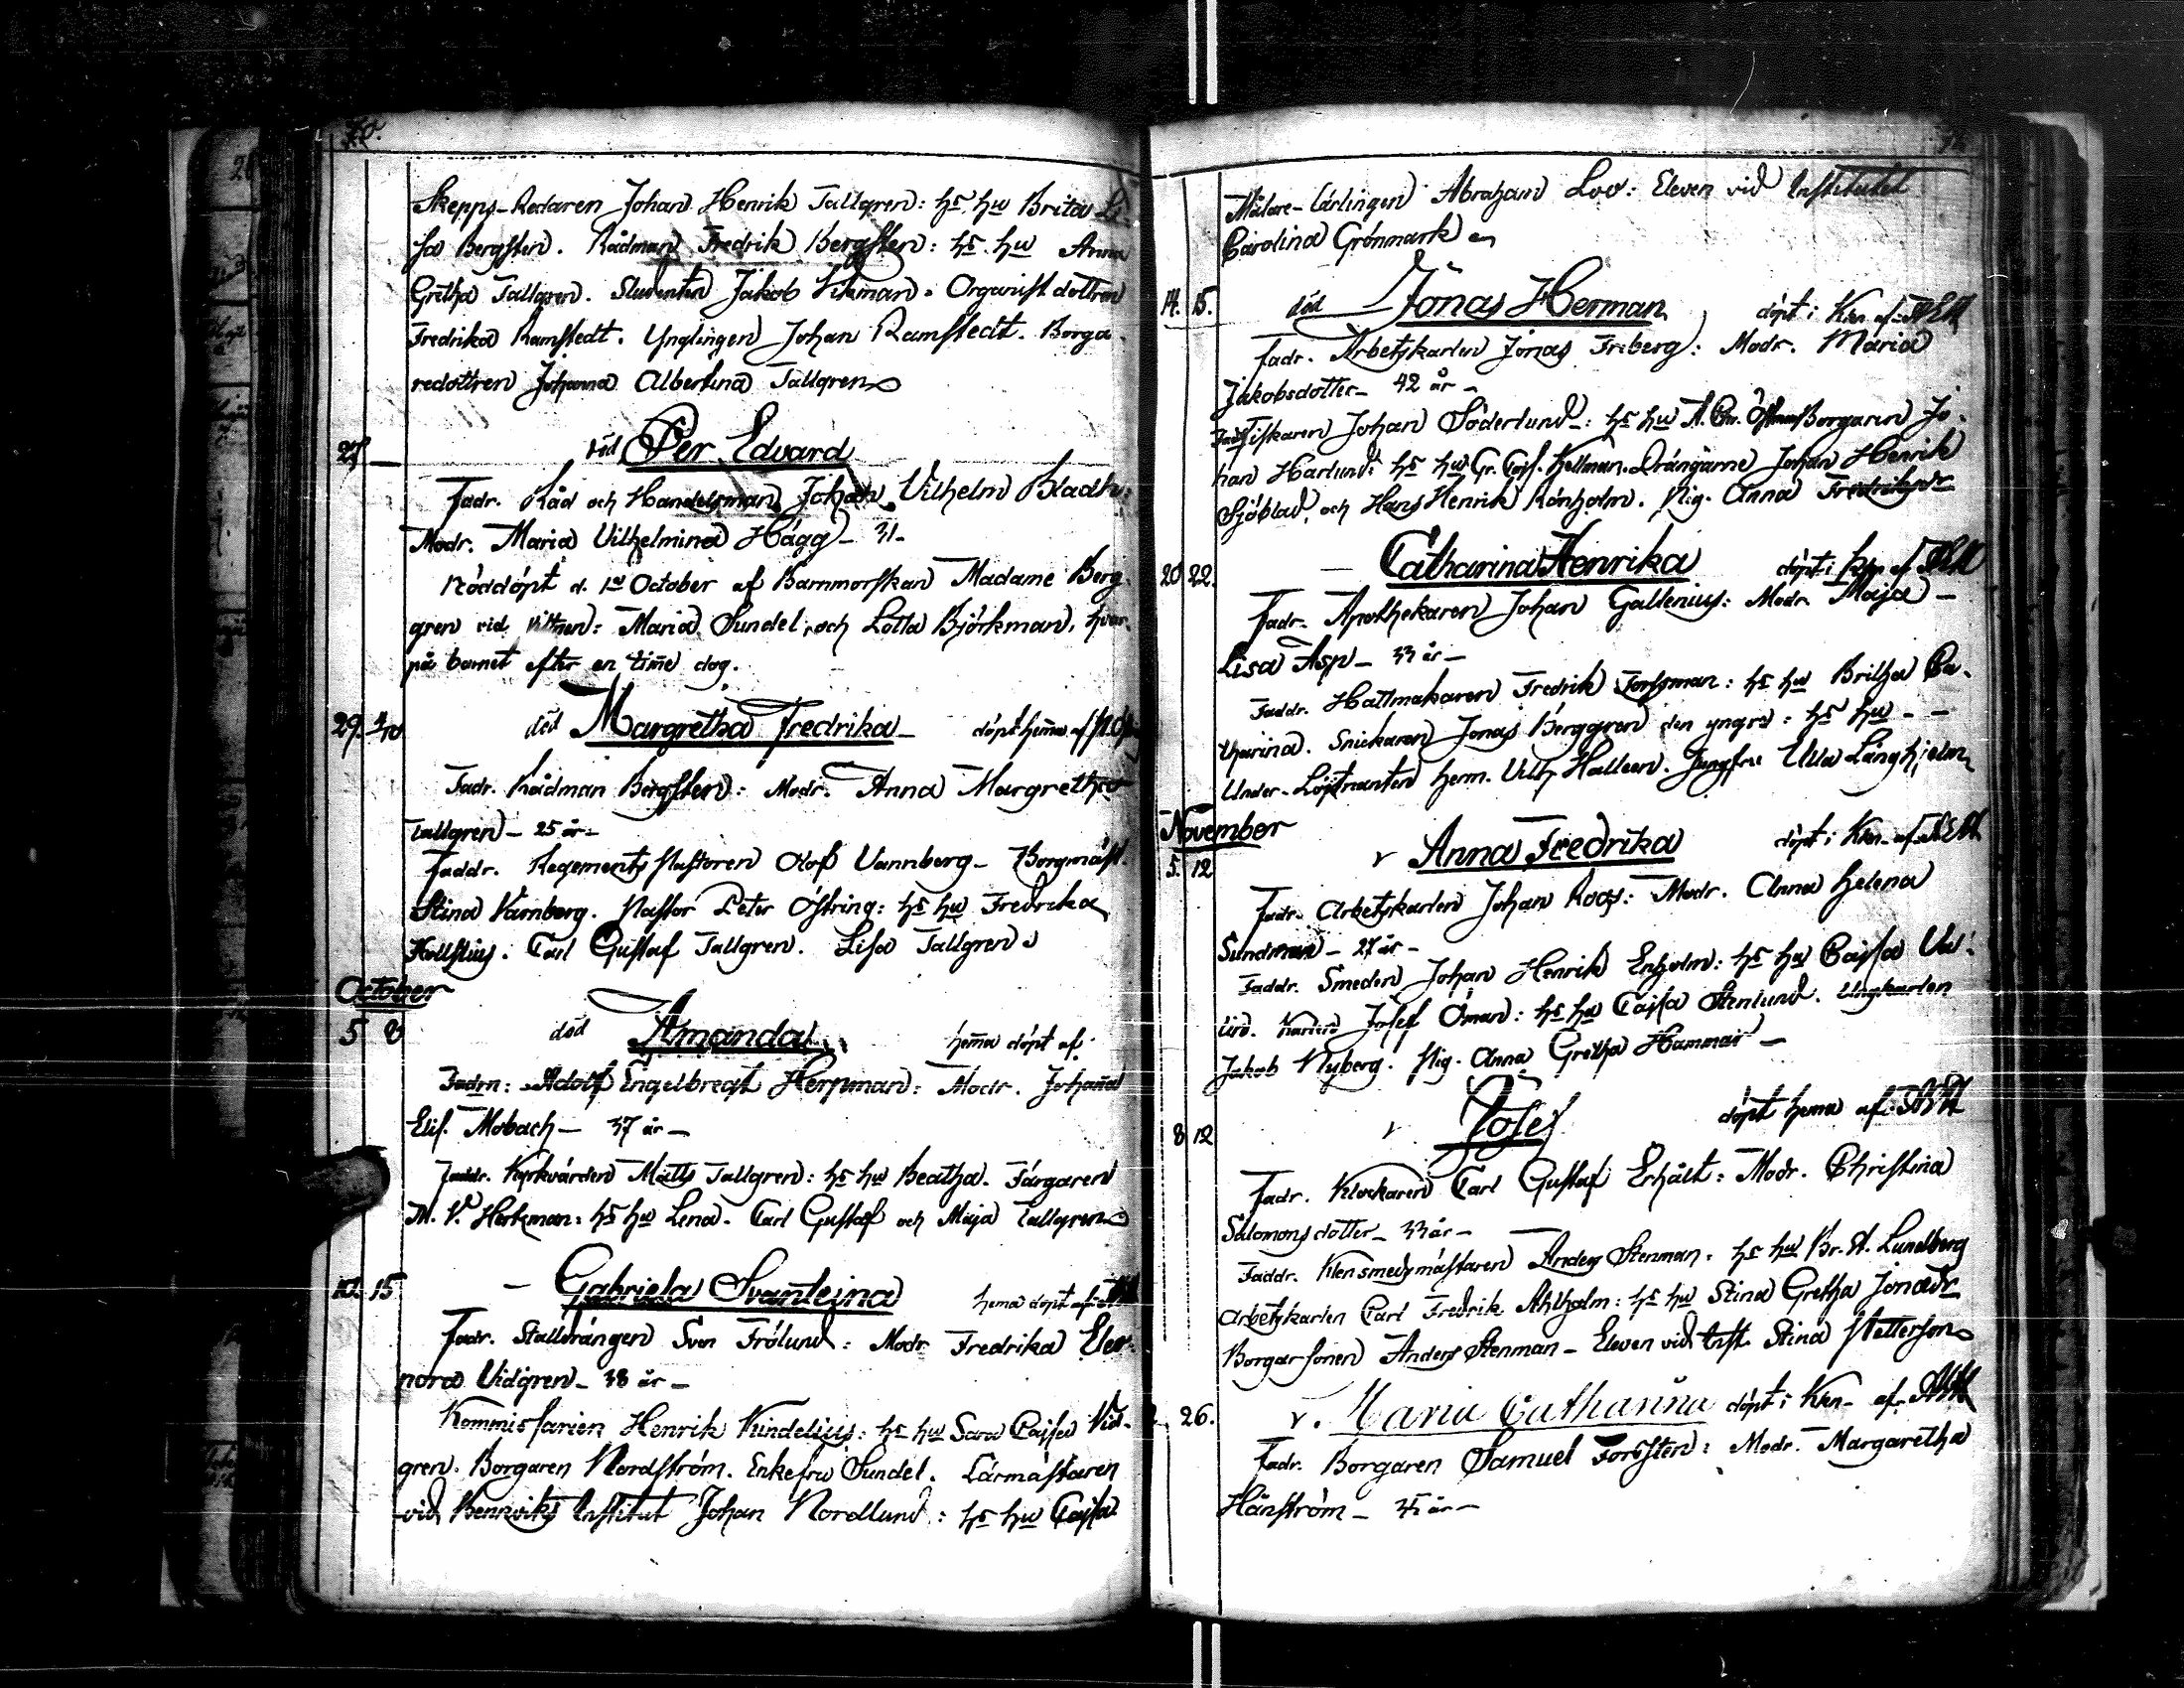 70.
Skepps-Redaren Johan Henrik Tallgren: hs hu Brita Li-
sa Bergsten. Rådman Fredrik Bergsten: hs hu Anna
Gretha Tallgren. Studenten Jakob Vikman. Organist dottren
Fredrika Ramstedt. Ynglingen Johan Ramstedt. Borga-
redottren Johanna Albertina Tallgren
27 död Per Edvard
Fadr. Råd och Handelsman Johan Vilhelm Bladh:
Modr. Maria Vilhelmina Hägg - 31 -
Nöddöpt d. 1 October af Barnmorskan Madame Berg-
gren vid vittnen: Maria Sundel, och Lotta Björkman, hvar-
på barnet efter en time dog.
29. 4/10 död Margretha Fredrika - döpt hema af
Fadr. Rådman Bergsten: Modr. Anna Margretha
Tallgren - 25 år -
Faddr. Regements Pastoren Olof Vannberg - Borgmäst.
Stina Varnberg. Pastor Peter Östring: hs hu Fredrika
Hollstius. Carl Gustaf Tallgren. Lisa Tallgren
October
5 8 död Amanda hema döpt af
Fadrn: Adolf Engelbregt Herpman: Modr. Johana
Elis. Mobach - 37 år -
Faddr. Kyrkvärden Matts Tallgren: hs hu Beatha. Färgaren
M. V. Herkman: hs hu Lena. Carl Gustaf och Maja Tallgren
10. 15 - Gabriela Svanteina hema döpt af
Fadr. Stalldrängen Sven Frölund: Modr Fredrika Eleo-
nora Vidgren - 38 år -
Kommissarien Henrik Kindelius: hs hu Sara Cajsa Vid-
gren. Borgaren Nordström. Enkefru Sundel. Lärmästaren
vid Benviks Institut Johan Nordlund: hs hu Cajsa
Målare-Lärlingen Abraham Lov: Eleven vid Institutet
Carolina Grönmark
14. 15. död Jonas Herman döpt i Kkn af
Fadr. Arbetskarlen Jonas Friberg: Modr. Maria
Jakobsdotter - 42 år -
Fiskaren Johan Söderlund: hs hu A. Chr. Borgaren Jo-
han Harlund: hs hu Gr. Cajs. Kellman. Drängarne Johan Henrik
Sjöblad, och Hans Henrik Rönholm. Pig. Anna Fredriksdr
20 22. - Catharina Henrika döpt i Kkn af
Fadr. Apothekaren Johan Gallenius: Modr Maja -
Lisa Asp - 33 år -
Faddr. Hattmakaren Fredrik Forssman: hs hu Britha Ca-
tharina. Snickaren Jonas Berggren den yngre: hs hu - -
Under-Löjtnanten Herm. Vilh Halleen. Jungfru Ulla Långhjelm
November
5. 12 v Anna Fredrika döpt i Kkn af
Fadr. Arbetskarlen Johan Roos: Modr. Anna Helena
Sundman - 27 år -
Faddr. Smeden Johan Henrik Enholm: hs hu Cajsa
Josef Öman: hs hu Cajsa Stenlund. Ungkarlen
Jakob Nyberg. Pig. Anna Gretha Hammar -
8 12 v Josef döpt hema af
Fadr. Klockaren Carl Gustaf Erhält: Modr. Christina
Salomonsdotter - 33 år -
Faddr. Klensmedsmästaren Anders Stenman: hs hu Br. A. Lundberg
Arbetskarlen Carl Fredrik Ahlholm: hs hu Stina Gretha Jonædr
Borgar sonen Anders Stenman - Eleven vid Inst. Stina Petterson
26. v. Maria Catharina döpt i Kkn - af
Fadr. Borgaren Samuel Forssten: Modr. Margaretha
Hanström - 35 år -